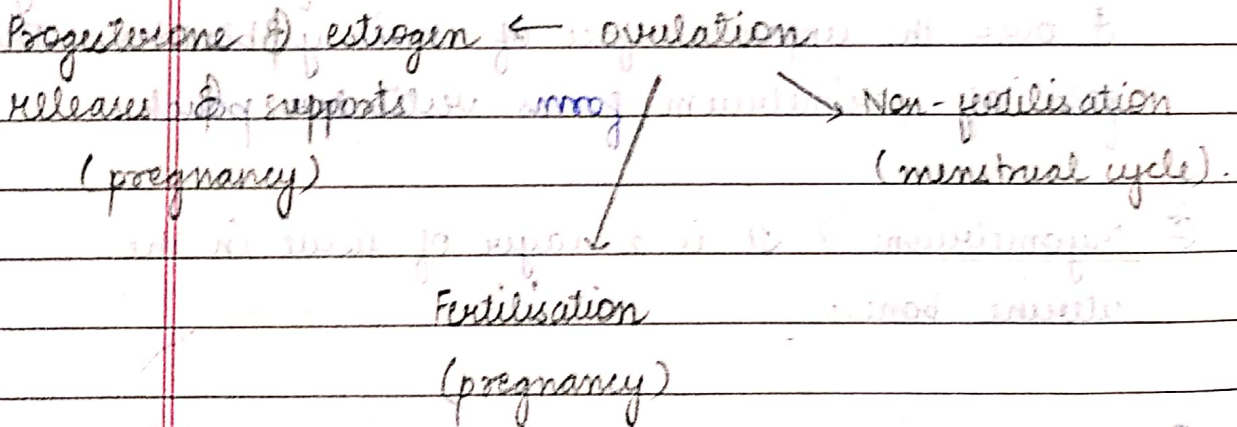 Progesterone & estrogen ← ovulation
releases & supports
Non-fertilisation
(pregnancy)
(menstrual cycle).
Fertilisation
(pregnancy)